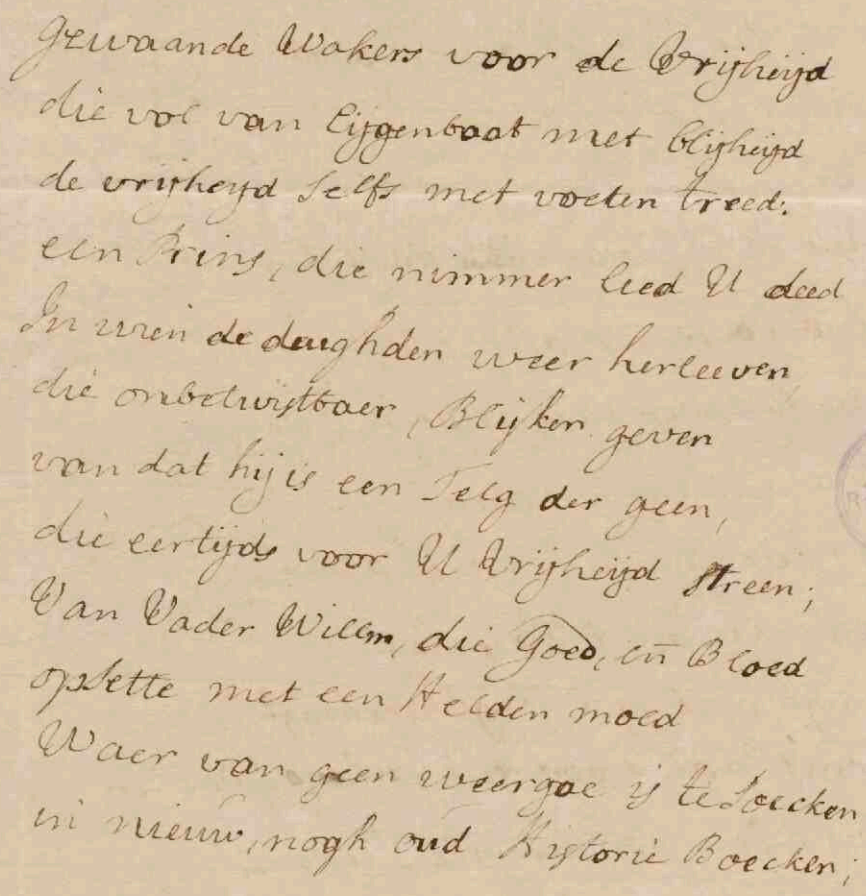 Gewaande Wakers voor de Vrijheijd
die vol van Eijgenbaat met blijheijd
de vrijheijd selfs met voeten treed:
een Prins, die nimmer leed U deed
In wien de deughden weer herleeven,
die onbetwistbaer, Blijken geven
van dat hij is een Telg der geen,
die eertijds voor U Vrijheijd streen;
Van Vader Willm, die Goed, en Bloed
opsette met een Helden moed
Waer van geen weergae is te soecken
in nieuw, nogh oud Historie Boecken;